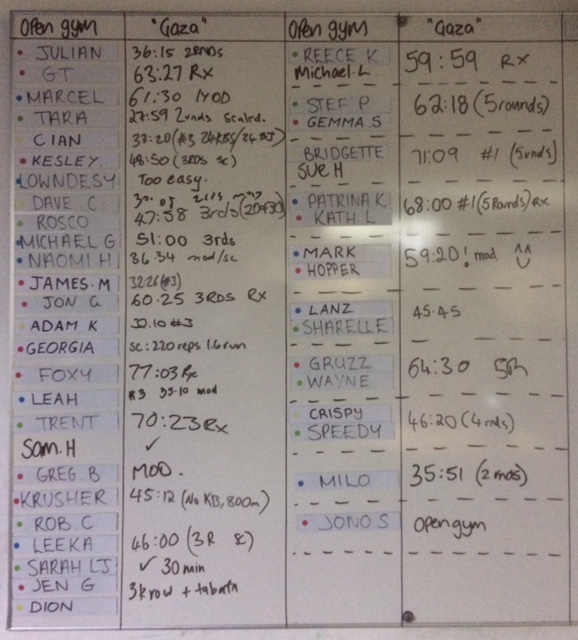 Open gym "Gaza"
JULIAN 36:15 2RNDS
GT 63:27 Rx
MARCEL 61:30 MOD
TARA 27:59 2rnds scaled.
CIAN 33:20 (#3 24KBS/24 BJ)
KESLEY 48:50 (3RDS sc)
LOWNDESY Too easy.
DAVE C
ROSCO 47:58 3rds (20#30)
MICHAEL G 51:00 3rds
NAOMI H 36.34 mod/sc
JAMES.M 32:26 (#3)
JON G 60.25 3RDS Rx
ADAM K 30.10 #3
GEORGIA sc: 220 reps 1.6 run
FOXY 77:03 Rx
LEAH #3 35:10 mod
TRENT 70:23 Rx
Sam.H ✓
GREG.B MOD.
KRUSHER 45:12 (No KB, 800m)
ROB.C
LEEKA 46:00 (3R sc)
SARAH LJ ✓ 30 min
JEN G 3k row + tabata
DION
Open gym "Gaza"
REECE K 59:59 Rx
Michael.L
STEF P 62:18 (5 rounds)
GEMMA S
BRIDGETTE 71:09 #1 (5rnds)
SUE H
PATRINA K 68:00 #1 (5 Rounds) Rx
KATH L
MARK 59:20! mod ^^
HOPPER
LANZ 45.45
SHARELLE
GRUZZ 64:30 5R
WAYNE
CRISPY 46:20 (4 rnds)
SPEEDY
MILO 35:51 (2 rnds)
JONO S Open gym